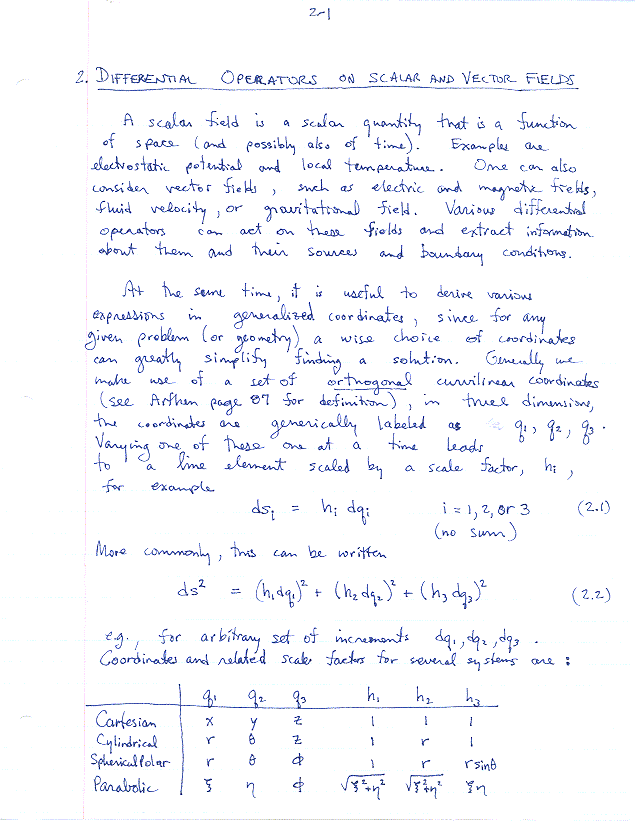 2-1
2. DIFFERENTIAL OPERATORS ON SCALAR AND VECTOR FIELDS
A scalar field is a scalar quantity that is a function
of space (and possibly also of time). Examples are
electrostatic potential and local temperature. One can also
consider vector fields, such as electric and magnetic fields,
fluid velocity, or gravitational field. Various differential
operators can act on these fields and extract information
about them and their sources and boundary conditions.
At the same time, it is useful to derive various
expressions in generalized coordinates, since for any
given problem (or geometry) a wise choice of coordinates
can greatly simplify finding a solution. Generally we
make use of a set of orthogonal curvilinear coordinates
(see Arfken page 87 for definition), in three dimensions,
the coordinates are generically labeled as q₁, q₂, q₃.
Varying one of these one at a time leads
to a line element scaled by a scale factor, hᵢ,
for example
dsᵢ = hᵢ dqᵢ i = 1, 2, or 3 (2.1)
(no sum)
More commonly, this can be written
ds² = (h₁dq₁)² + (h₂dq₂)² + (h₃dq₃)² (2.2)
e.g., for arbitrary set of increments dq₁, dq₂, dq₃.
Coordinates and related scale factors for several systems are:
q₁ q₂ q₃ h₁ h₂ h₃
Cartesian x y z 1 1 1
Cylindrical r θ z 1 r 1
Spherical Polar r θ ϕ 1 r r sinθ
Parabolic ξ η ϕ √ξ²+η² √ξ²+η² ξη